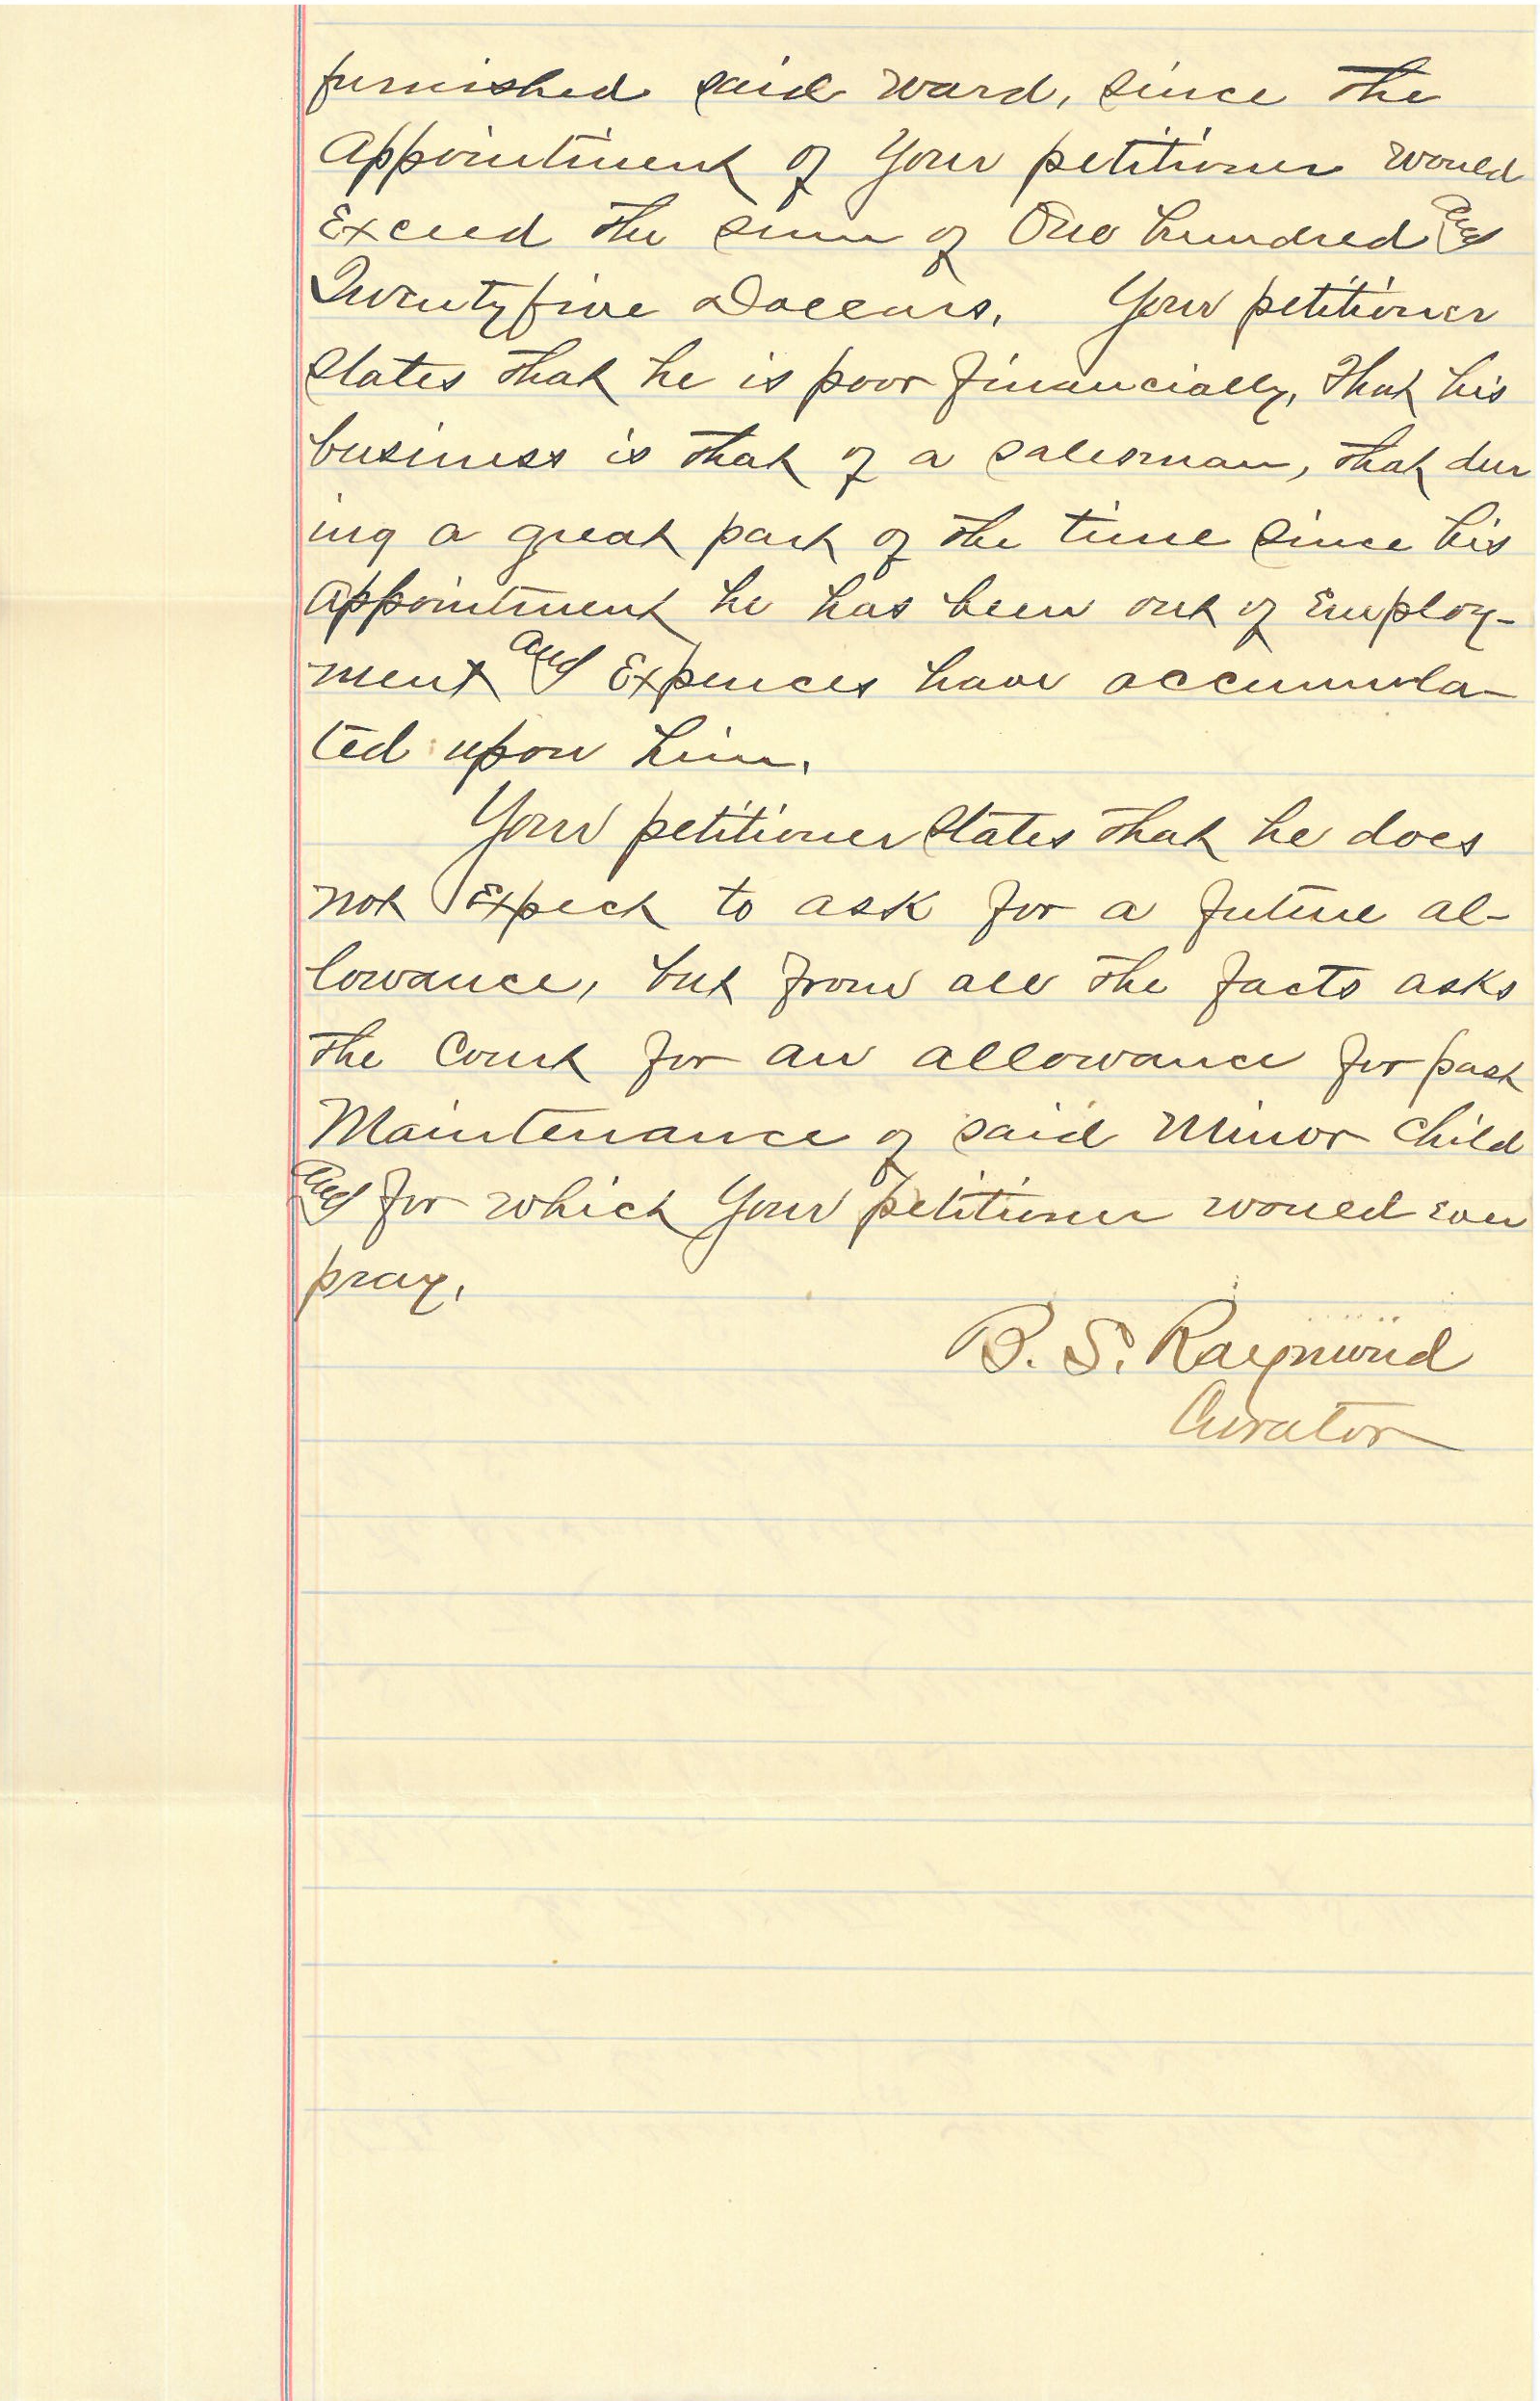 furnished said ward, since the
appointment of Your petitioner would
Exceed the sum of One hundred and
Twenty five Dollars. Your petitioner
states that he is poor financially, that his
business is that of a salesman, that dur
ing a great part of the time since his
appointment he has been out of Employ-
ment and Expences have accumula-
ted upon him.
Your petitioner states that he does
not Expect to ask for a future al-
lowance, but from all the facts asks
the Court for an allowance for past
Maintenance of said Minor Child
and for which Your petitioner would ever
pray.
B. S. Raymond
Curator